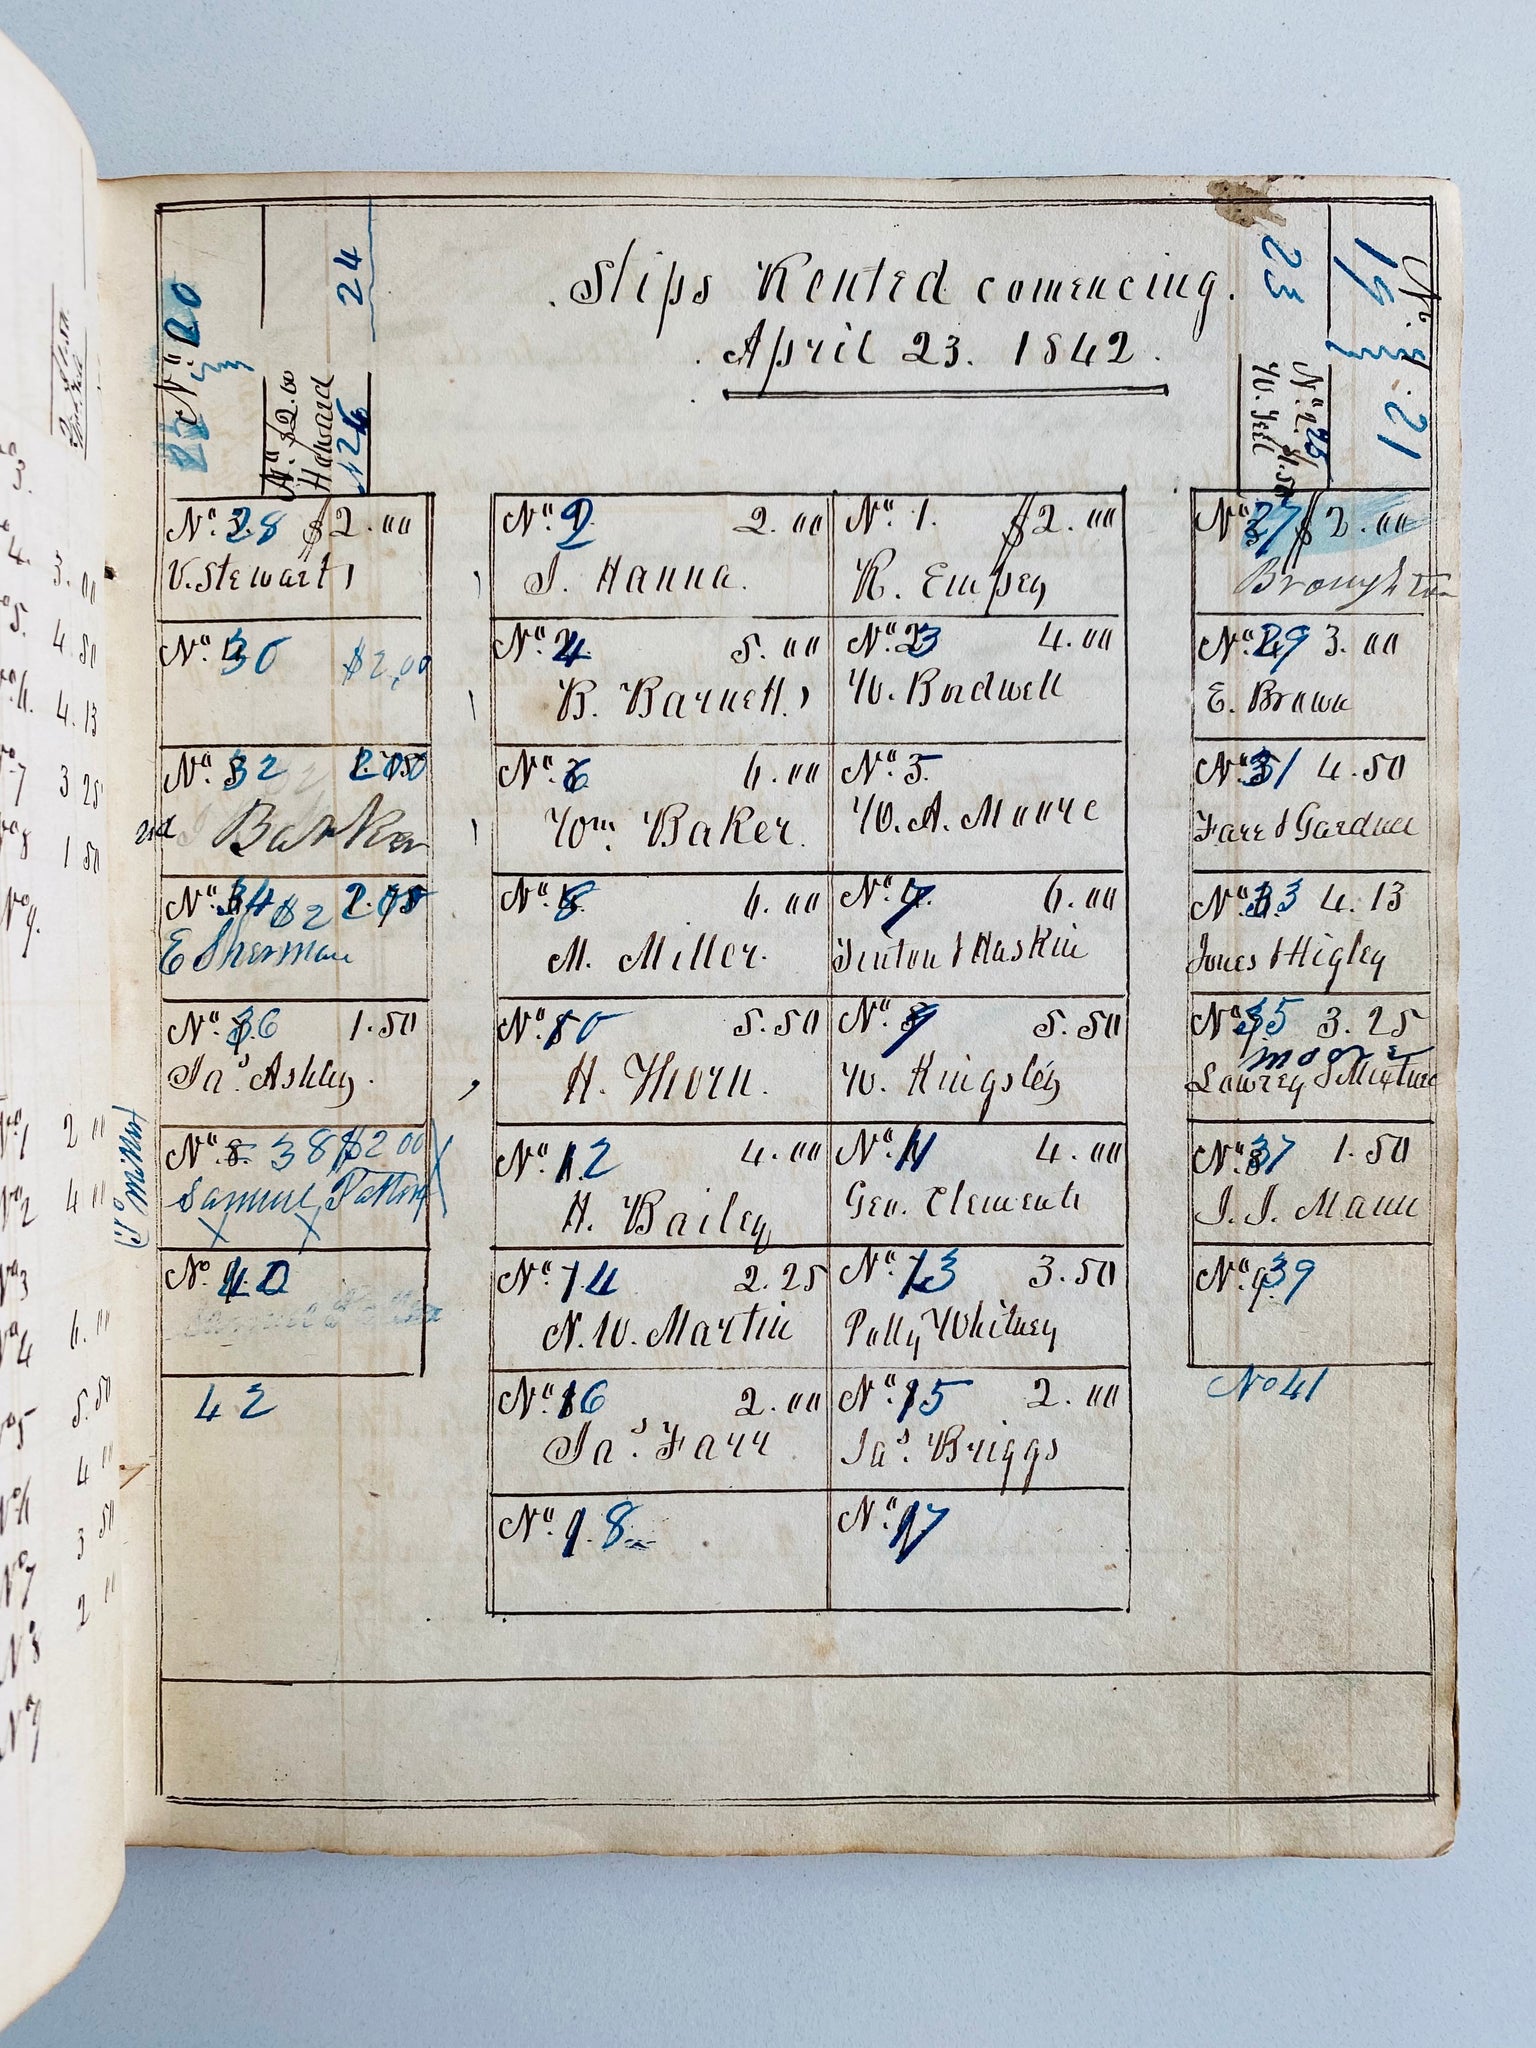 Slips Rented comencing.
April 23. 1842.
24
23
19
Nº. 20
Nº. $2.00
Haward
26
Nº. 25 1.50
21
Nº. 28 $2.00
V. Stewart
Nº. 2 2.00
J. Hanna.
Nº. 1. $2.00
R. Empey
Nº. 27 $2.00
Broughton
Nº. 30 $2,00
Nº. 4 5.00
B. Barnett
Nº. 3 4.00
W. Bordwell
Nº. 29 3.00
E. Brown
Nº. 32 2.00
Barker
Nº. 6 6.00
Wm. Baker.
Nº. 5.
W. A. Moore
Nº. 31 4.50
Farr & Gardner
Nº. 34 $2 2.00
E Sherman
Nº. 8 6.00
M. Miller.
Nº. 7. 6.00
Tinton & Haskin
Nº. 33 4.13
Jones & Higley
Nº. 36 1.50
Jas. Ashley.
Nº. 10 5.50
H. Thorn.
Nº. 9 5.50
W. Kingsley
Nº. 35 3.25
moore
Lowrey &
Nº. 8. 38 $2 00
Samuel Patten
Miller
Nº. 12 4.00
H. Bailey
Nº. 11 4.00
Geo. Clements
Nº. 37 1.50
J. J. Mann
No. 40
Nº. 14 2.25
N. W. Martin
Nº. 13 3.50
Polly Whitney
Nº. 39
42
Nº. 16 2.00
Jas. Farr
Nº. 15 2.00
Jas. Briggs
No 41
Nº. 18
Nº. 17